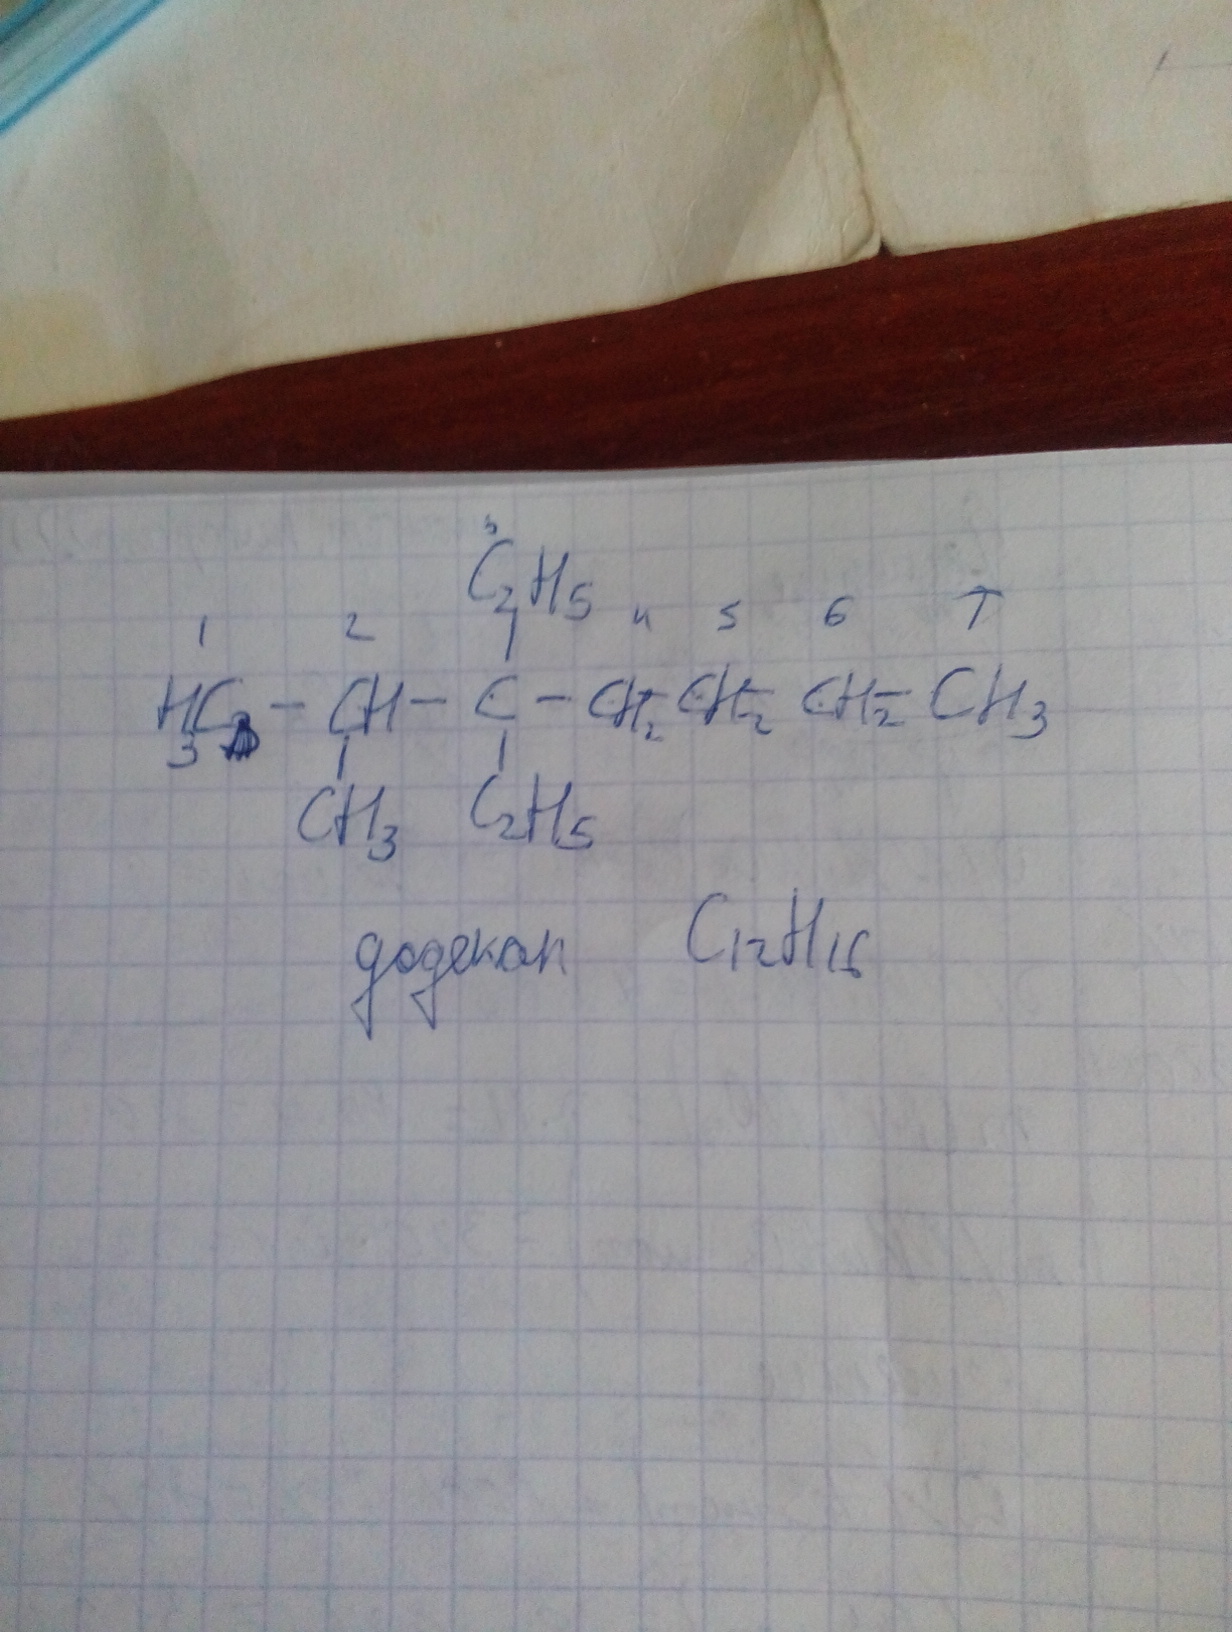 3
C2H5
1 2 4 5 6 7
H3C - CH - C - CH2 - CH2 - CH2 - CH3
CH3 C2H5
додекан C12H16